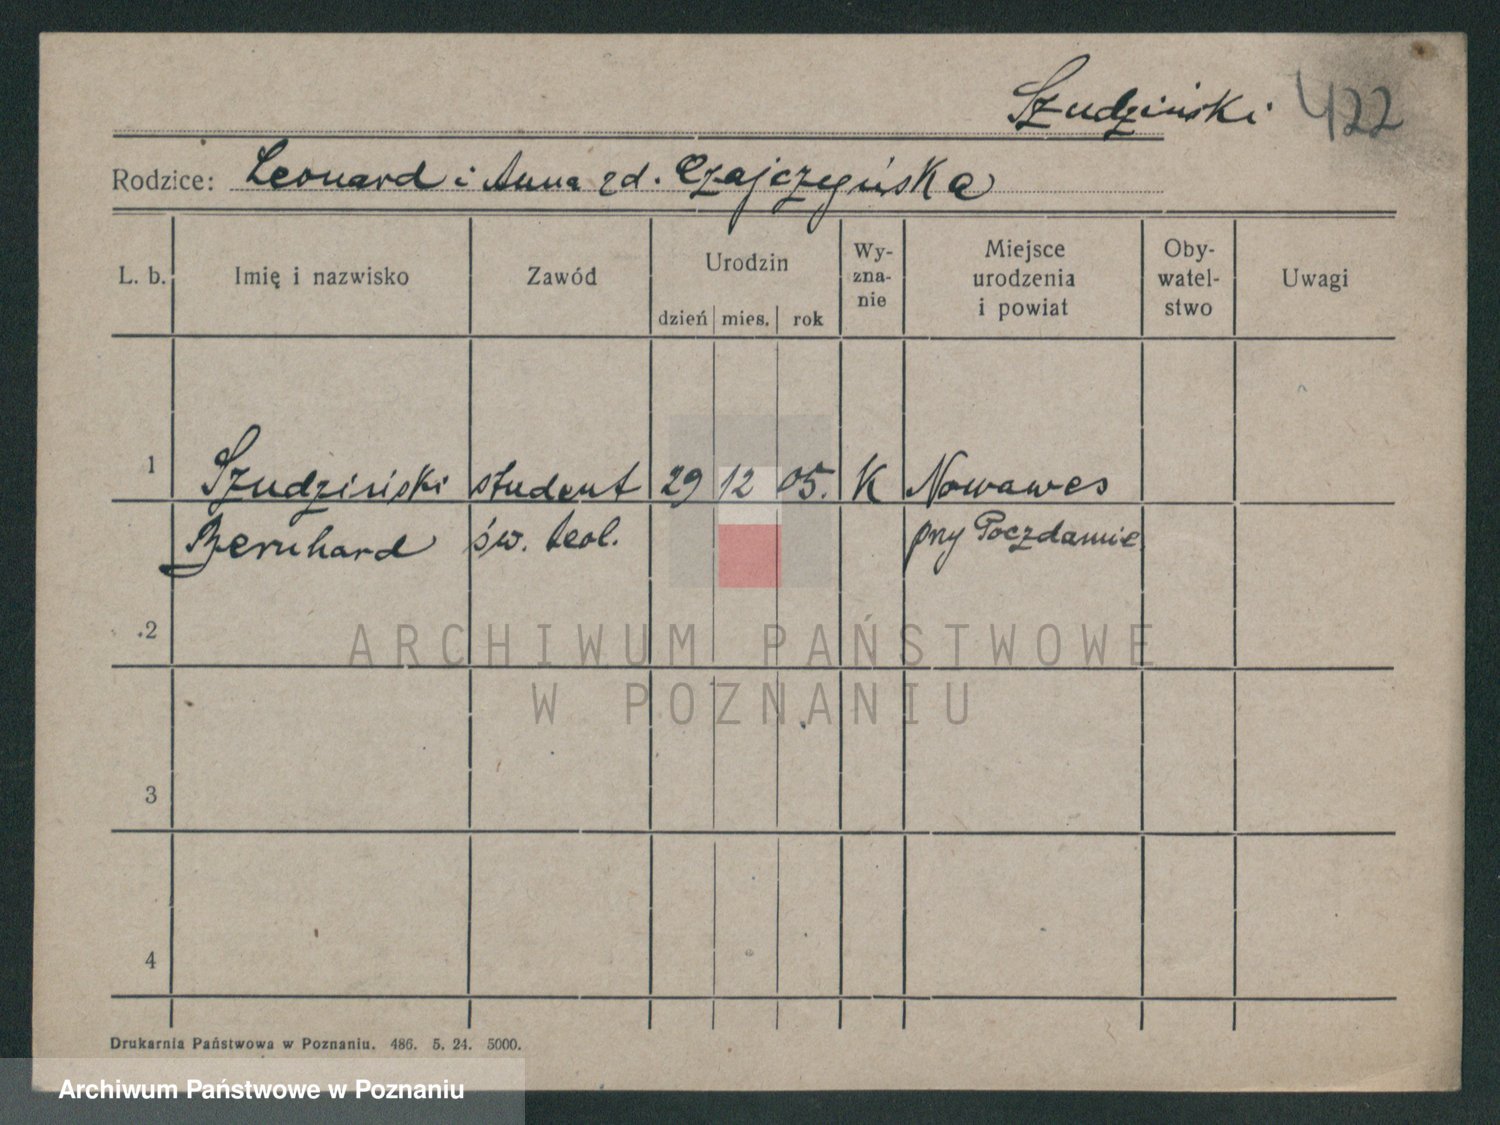 Szudziński 422
Rodzice: Leonard i Anna zd. Czajczyńska
L. b. Imię i nazwisko Zawód Urodzin dzień mies. rok Wy-znanie Miejsce urodzenia i powiat Oby-watel-stwo Uwagi
1 Szudziński student 29 12 05. K Nowawes
Bernhard św. teol. przy Poczdamie
2
ARCHIWUM PAŃSTWOWE
W POZNANIU
3
4
Drukarnia Państwowa w Poznaniu. 486. 5. 24. 5000.
Archiwum Państwowe w Poznaniu